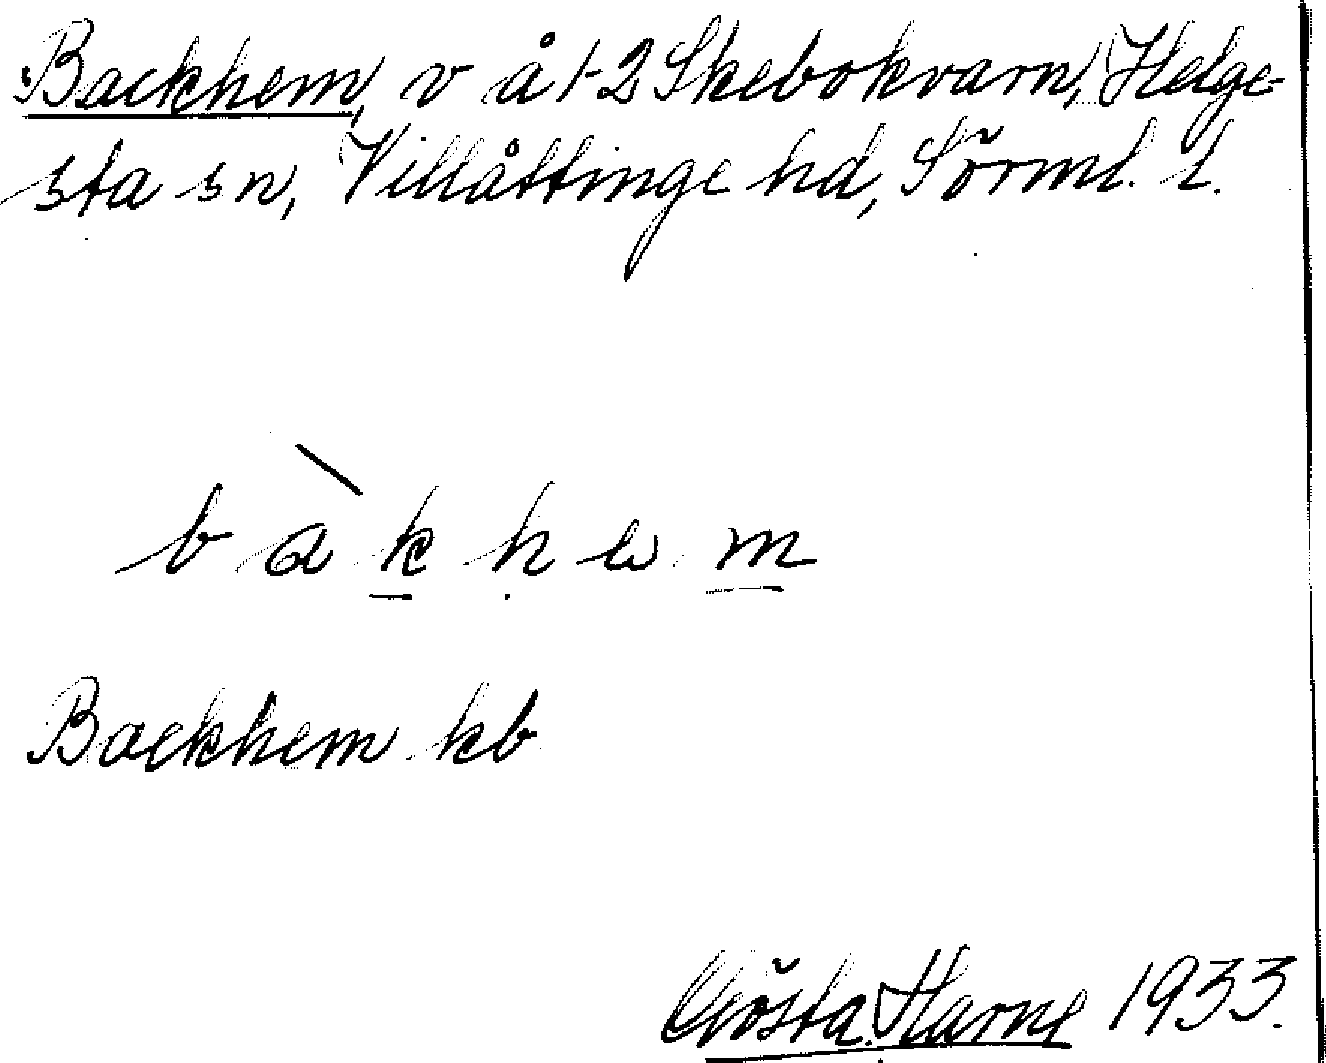 Backhem, v å 1-2 Skebokvarn, Helge-
sta sn, Villåttinge hd, Sörml. l.
bàkhem
Backhem kb
Gösta Harne 1933.